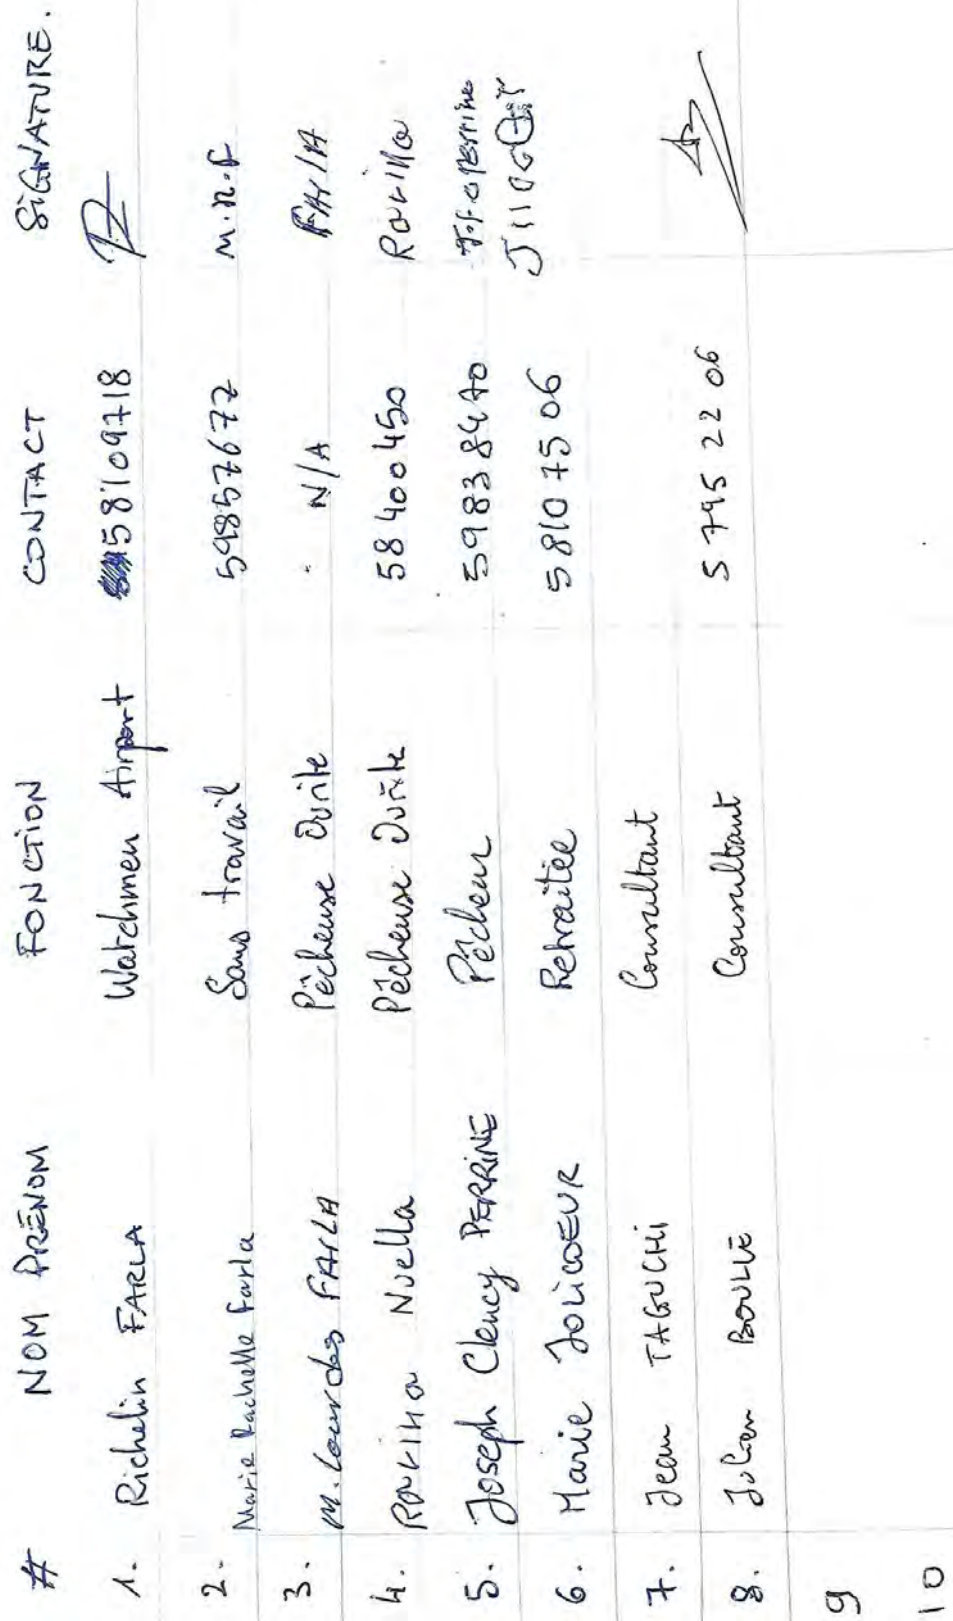 # NOM PRÉNOM FONCTION CONTACT SIGNATURE.
1. Richelin FARLA Watchmen Airport 58109718
2. Marie Rachelle Farla Sans travail 59857677 M.R.F
3. M. Lourdes FARLA Pêcheuse Ourite N/A FARLA
4. Ravina Nuella Pêcheuse Ourite 58400450 Ravina
5. Joseph Clency PERRINE Pêcheur 59838470
6. Marie JOLICOEUR Retraitée 58107506
7. Jean TAGUCHI Consultant
8. Julien BOULLE Consultant 5 795 22 06
9
10